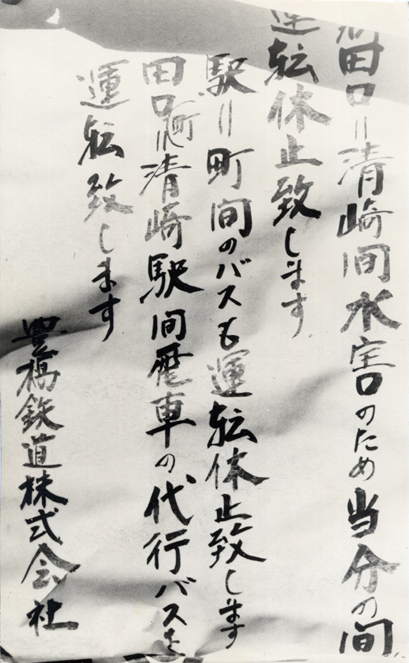 田口=清崎間水害のため当分の間
運転休止致します
駅=町間のバスも運転休止致します
田口町=清崎駅間電車の代行バスを
運転致します
豊橋鉄道株式会社